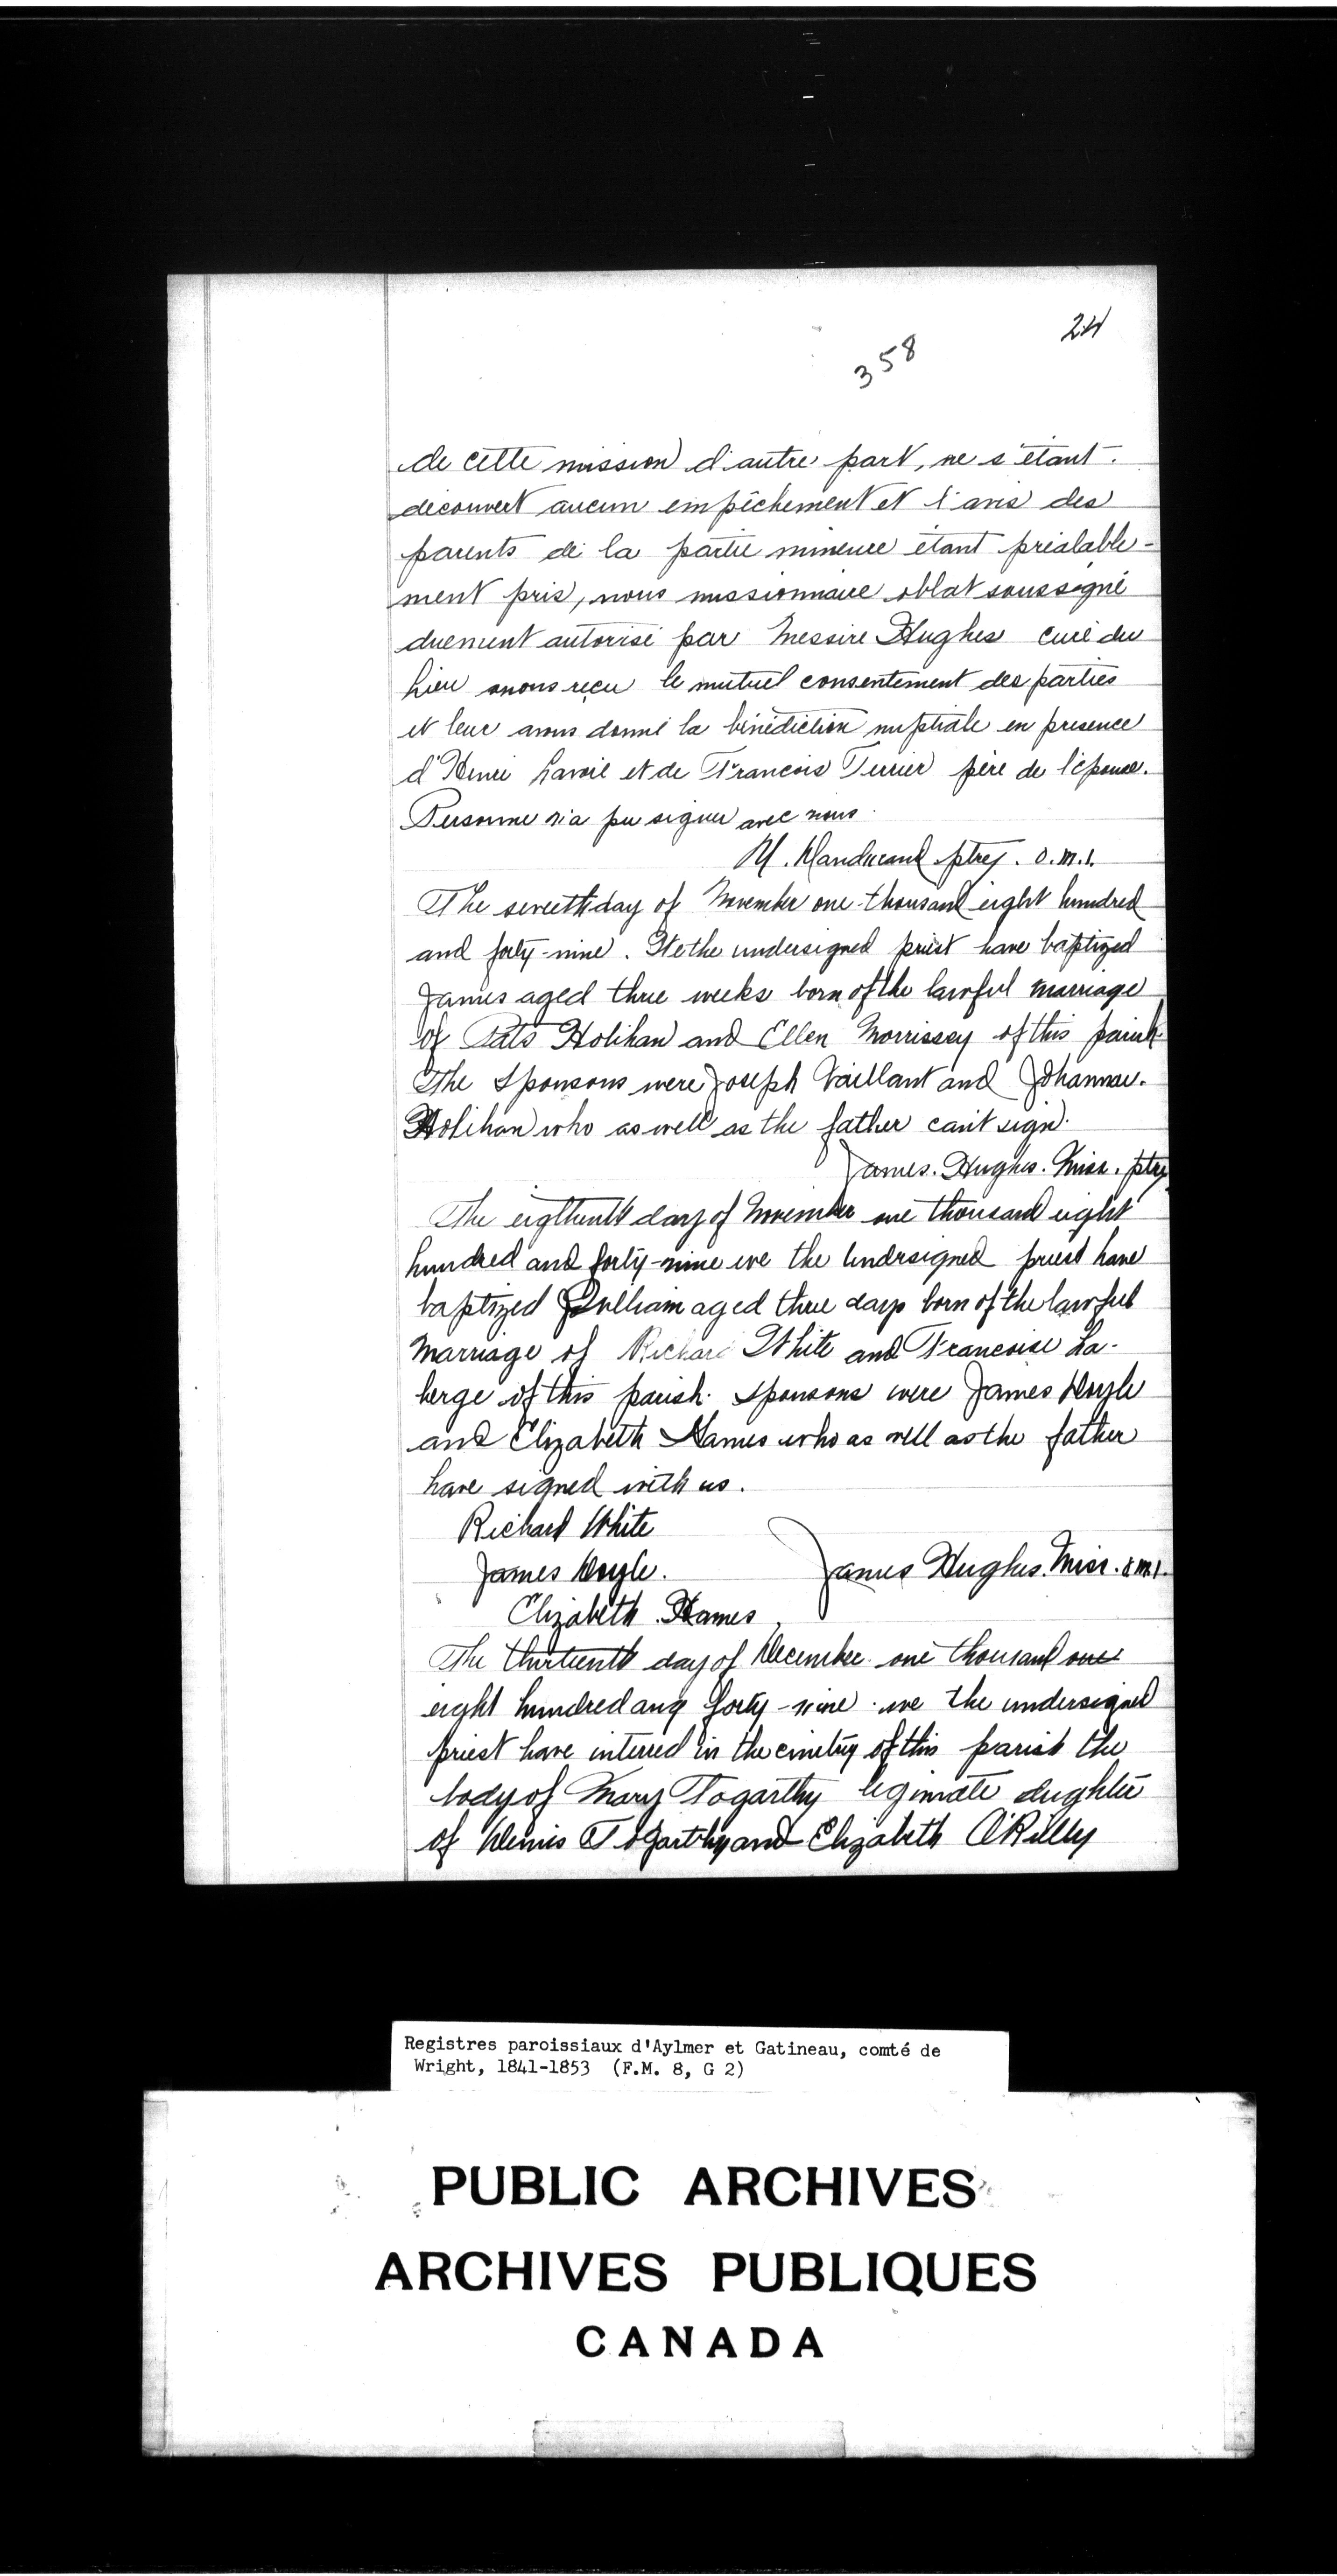 24
358
de cette mission d'autre part, ne s'étant
découvert aucun empêchement et l'avis des
parents de la partie mineure étant préalable-
ment pris, nous missionnaire oblat soussigné
duement autorisé par Messire Hughes curé du
lieu avons reçu le mutuel consentement des parties
et leur avons donné la bénédiction nuptiale en presence
d'Henri Lavoie et de Francois Terrier père de l'épouse.
Personne n'a pu signer avec nous
ptrej. O.M.I.
The seveth day of November one thousand eight hundred
and forty-nine. We the undersigned priest have baptized
James aged three weeks born of the lawful marriage
of Pats Holihan and Ellen Morrissey of this parish
The sponsons were Joseph Vaillant and Johanna
Holihan who as well as the father can't sign.
James. Hughes. Miss. ptrej
The eigthenth day of November one thousand eight
hundred and forty-nine we the undersigned priest have
baptized William aged three days born of the lawful
marriage of Richard White and Francoise La-
berge of this parish. Sponsons were James Doyle
and Elizabeth Hames who as well as the father
have signed with us.
Richard White
James Doyle. James Hughes. Miss. o.m.i.
Elizabeth Hames
The thirteenth day of December one thousand one
eight hundred ang forty-nine we the undersigned
priest have interred in the cimetry of this parish the
body of Mary Togarthy legimate dughter
of Dennis Togarthy and Elizabeth O'Rilly
Registres paroissiaux d'Aylmer et Gatineau, comté de
Wright, 1841-1853 (F.M. 8, G 2)
PUBLIC ARCHIVES
ARCHIVES PUBLIQUES
CANADA